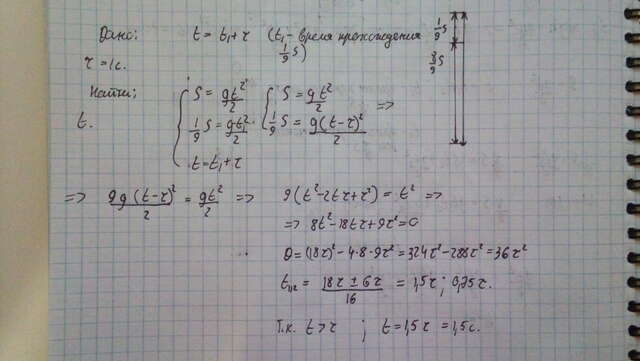 Дано:
τ = 1с.
Найти:
t.
t = t₁ + τ (t₁ - время прохождения
1/9 S)
{ S = gt²/2
1/9 S = gt₁²/2
t = t₁ + τ
{ S = gt²/2
1/9 S = g(t-τ)²/2 =>
1/9 S
8/9 S
=> 9g(t-τ)²/2 = gt²/2 =>
9(t²-2tτ+τ²) = t² =>
=> 8t²-18tτ+9τ²=0
D = (18τ)²-4·8·9τ² = 324τ²-288τ² = 36τ²
t₁,₂ = (18τ ± 6τ)/16 = 1,5τ; 0,75τ.
Т.к. t > τ ; t = 1,5τ = 1,5с.